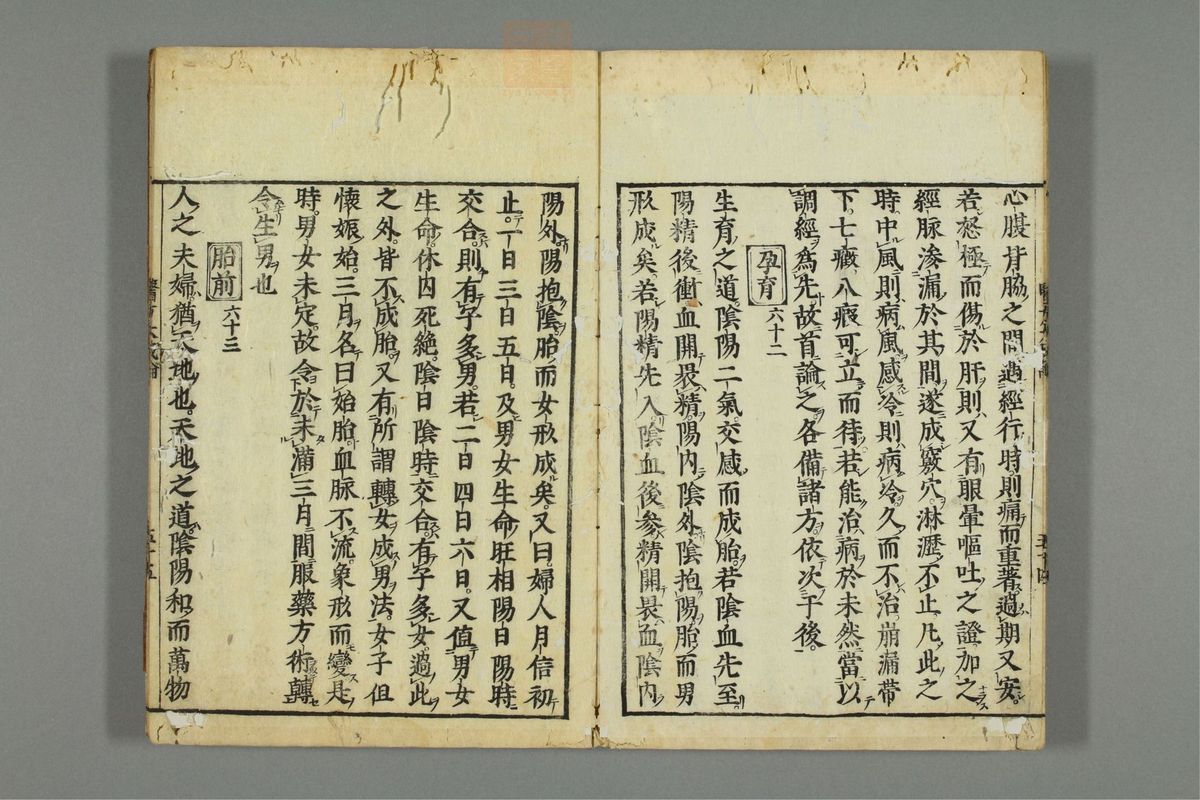 心腹背脇之間過經行時則痛而重著過期又安
若怒極而傷於肝則又有眼暈嘔吐之證加之
經脉滲漏於其間遂成竅穴淋瀝不止凡此之
時中風則病風感冷則病冷久而不治崩漏帶
下七癥八瘕可立而待若能治病於未然當以
調經爲先故首論之各備諸方依次于後
孕育 六十二
生育之道陰陽二氣交感而成胎若陰血先至
陽精後衝血開裹精陽内陰外陰抱陽胎而男
形成矣若陽精先入陰血後參精開裹血陰内
陽外陽抱陰胎而女形成矣又曰婦人月信初
止一日三日五日及男女生命旺相陽日陽時
交合則有子多男若二日四日六日又值男女
生命休囚死絶陰日陰時交合有子多女過此
之外皆不成胎又有所謂轉女成男法女子但
懷娠始三月名曰始胎血脉不流象形而變是
時男女未定故令於未滿三月間服藥方術轉
令生男也
胎前 六十三
人之夫婦猶天地也天地之道陰陽和而萬物
五十五